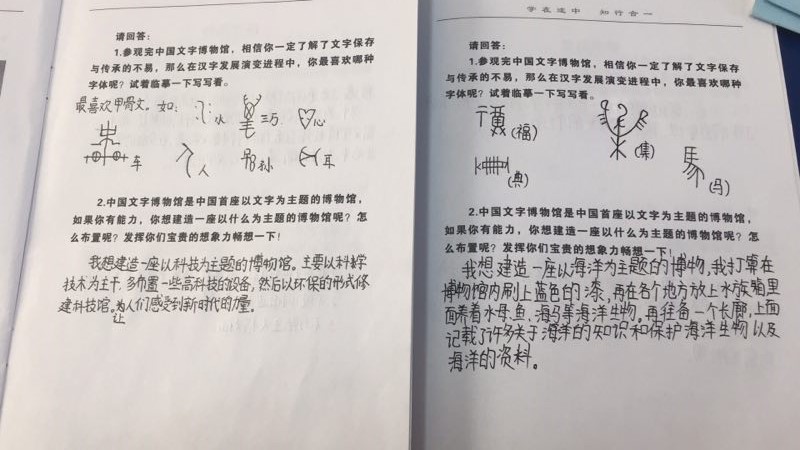 请回答：
1.参观完中国文字博物馆，相信你一定了解了文字保存
与传承的不易，那么在汉字发展演变进程中，你最喜欢哪种
字体呢？试着临摹一下写写看。
最喜欢甲骨文。如：
心
车 人 孙 耳
2.中国文字博物馆是中国首座以文字为主题的博物馆，
如果你有能力，你想建造一座以什么为主题的博物馆呢？怎
么布置呢？发挥你们宝贵的想象力畅想一下！
我想建造一座以科技为主题的博物馆。主要以科学
技术为主干，多布置一些高科技的设备，然后以环保的形式修
建科技馆。为人们感受到新时代的力量。
让
学在途中 知行合一
请回答：
1.参观完中国文字博物馆，相信你一定了解了文字保存
与传承的不易，那么在汉字发展演变进程中，你最喜欢哪种
字体呢？试着临摹一下写写看。
(福) (集)
(典) (马)
2.中国文字博物馆是中国首座以文字为主题的博物馆，
如果你有能力，你想建造一座以什么为主题的博物馆呢？怎
么布置呢？发挥你们宝贵的想象力畅想一下！
我想建造一座以海洋为主题的博物，我打算在
博物馆内刷上蓝色的漆，再在各个地方放上水族箱里
面养着水母、鱼、海马等海洋生物。再准备一个长廊，上面
记载了许多关于海洋的知识和保护海洋生物以及
海洋的资料。